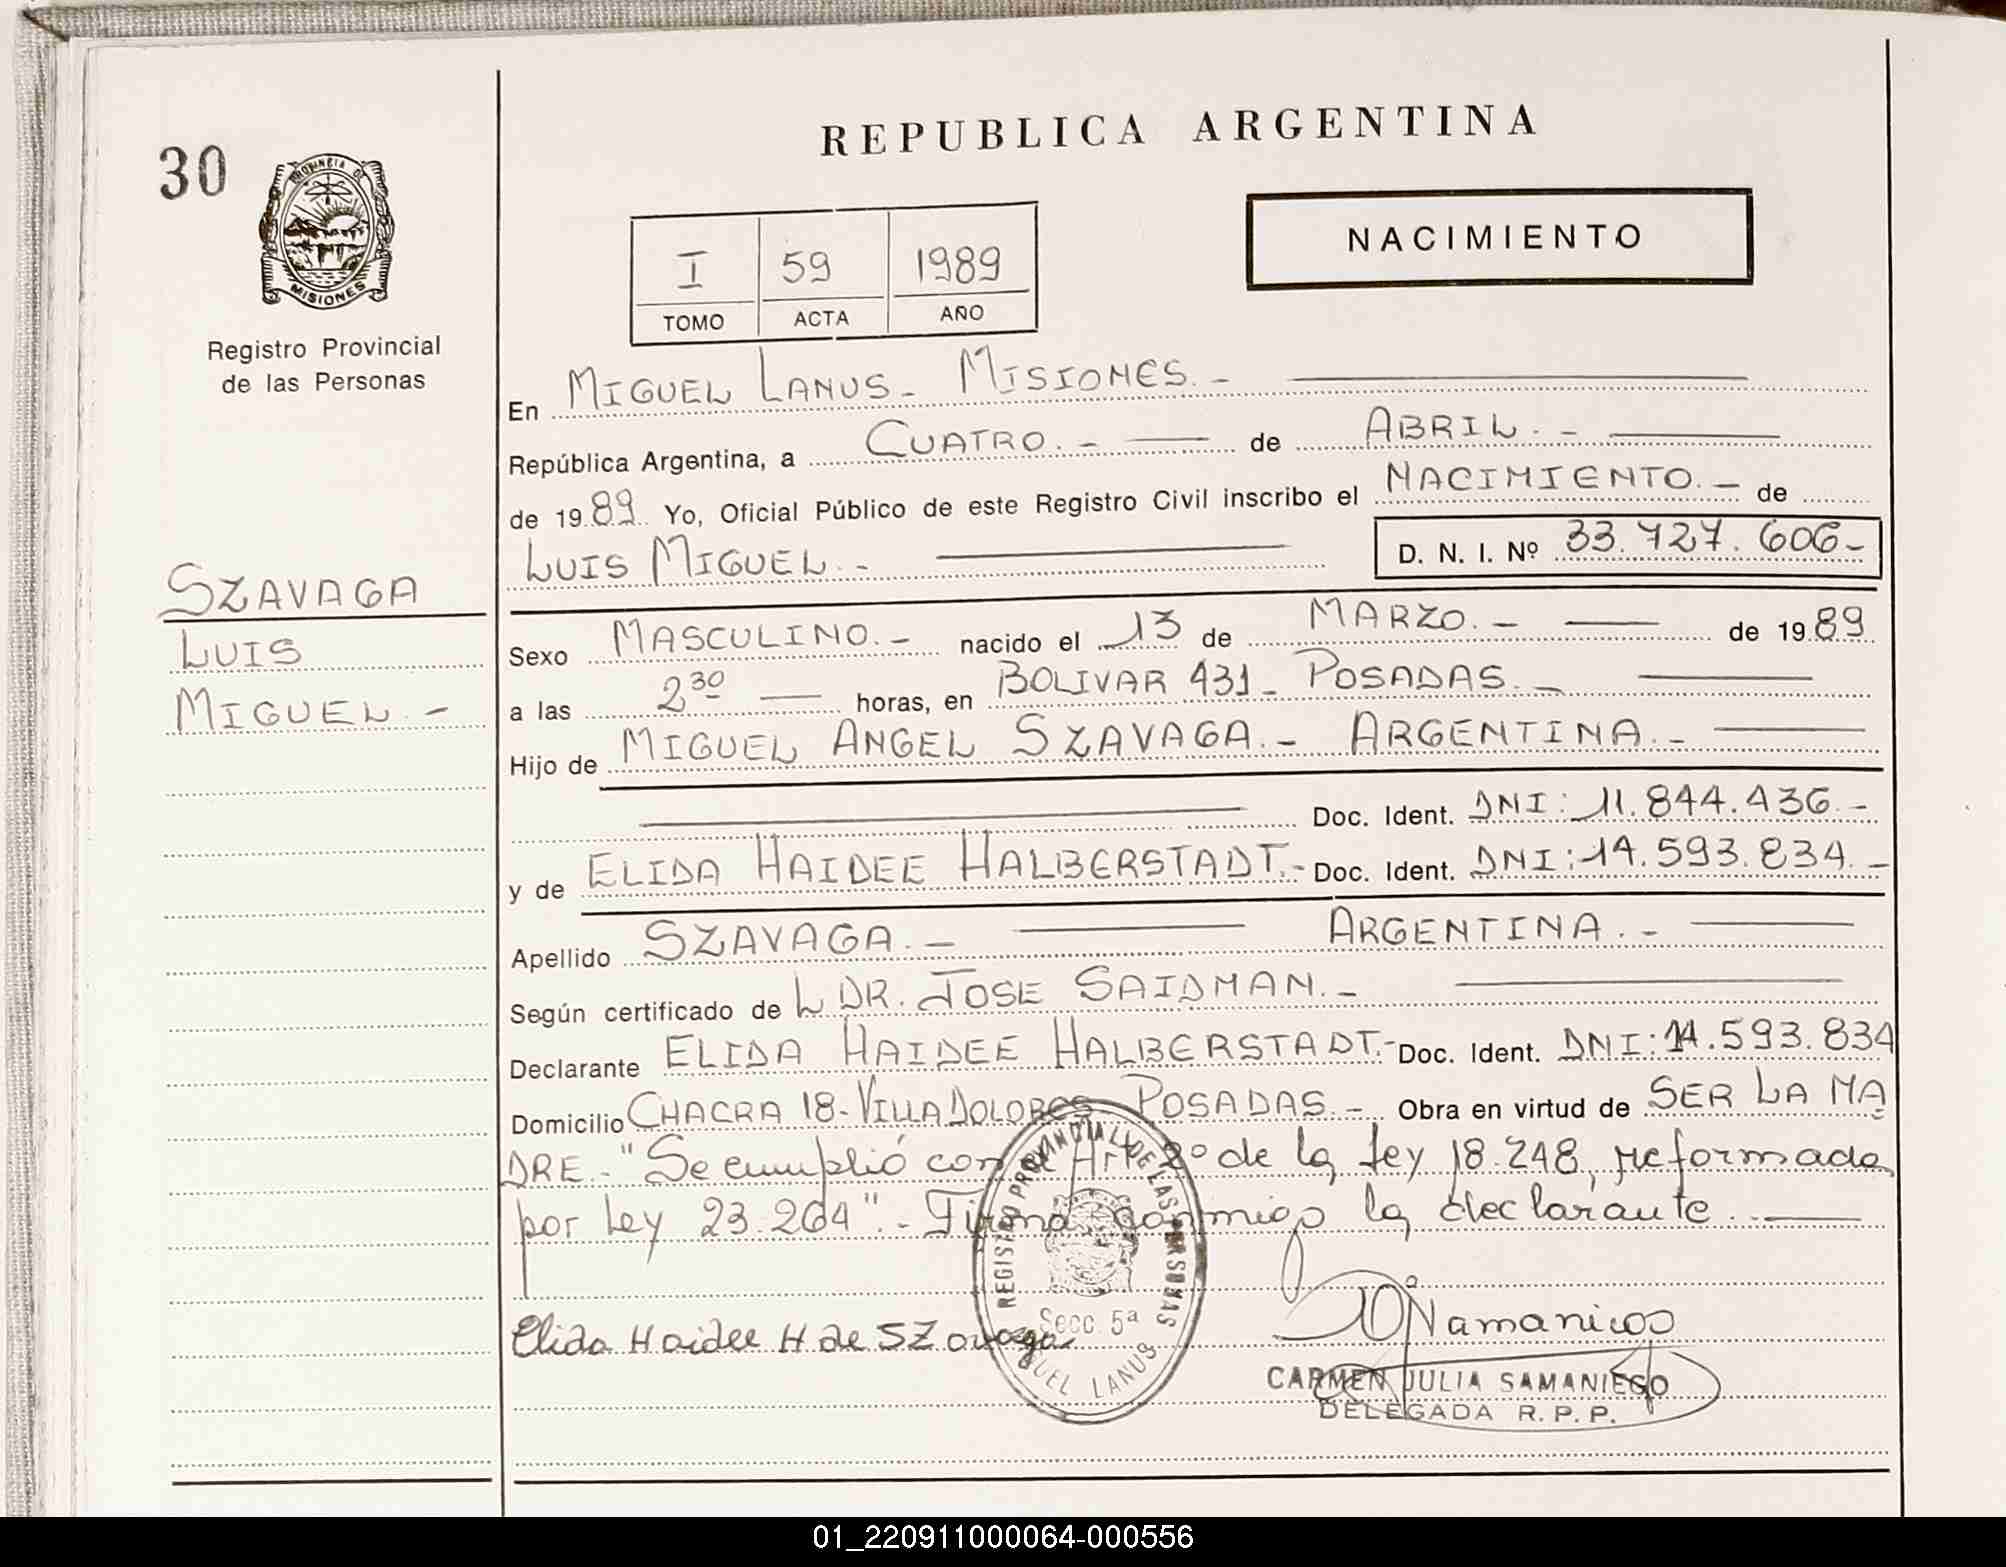 30
PROVINCIA DE
MISIONES
Registro Provincial
de las Personas
SZAVAGA
LUIS
MIGUEL.-
REPUBLICA ARGENTINA
I 59 1989
TOMO ACTA AÑO
NACIMIENTO
En MIGUEL LANUS- MISIONES.-
República Argentina, a CUATRO.- de ABRIL.-
de 1989. Yo, Oficial Público de este Registro Civil inscribo el NACIMIENTO.- de
LUIS MIGUEL.- D. N. I. Nº 33.727.606-
Sexo MASCULINO.- nacido el 13 de MARZO.- de 1989
a las 2³⁰ horas, en BOLIVAR 431- POSADAS.-
Hijo de MIGUEL ANGEL SZAVAGA.- ARGENTINA.-
Doc. Ident. DNI: 11.844.436.-
y de ELIDA HAIDEE HALBERSTADT.- Doc. Ident. DNI: 14.593.834.-
Apellido SZAVAGA.- ARGENTINA.-
Según certificado de L DR. JOSE SAIDMAN.-
Declarante ELIDA HAIDEE HALBERSTADT.- Doc. Ident. DNI: 14.593.834
Domicilio CHACRA 18-VILLA DOLORES POSADAS.- Obra en virtud de SER LA MA
DRE.- "Se cumplió con Art 2º de la ley 18.248, reformada
por Ley 23.264".- Firma conmigo la declarante.
Elida Haidee H de Szavaga
REGISTRO PROVINCIAL DE LAS PERSONAS
Secc. 5ª
MIGUEL LANUS
CARMEN JULIA SAMANIEGO
DELEGADA R.P.P.
01_220911000064-000556